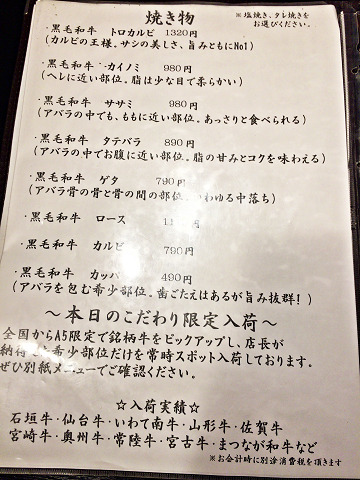 焼き物
※塩焼き、タレ焼きを
お選びください。
・黒毛和牛 トロカルビ 1320円
(カルビの王様。サシの美しさ、旨みともにNo1)
・黒毛和牛 カイノミ 980円
(ヘレに近い部位。脂は少な目で柔らかい)
・黒毛和牛 ササミ 980円
(アバラの中でも、ももに近い部分。あっさりと食べられる)
・黒毛和牛 タテバラ 890円
(アバラの中でお腹に近い部分。脂の甘みとコクを味わえる)
・黒毛和牛 ゲタ 790円
(アバラ骨の骨と骨の間の部位。いわゆる中落ち)
・黒毛和牛 ロース
・黒毛和牛 カルビ 790円
・黒毛和牛 カッパ 490円
(アバラを包む希少部位。歯ごたえはあるが旨み抜群!)
～本日のこだわり限定入荷～
全国からA5限定で銘柄牛をピックアップし、店長が
納得した希少部位だけを常時スポット入荷しております。
ぜひ別紙メニューでご確認ください。
☆入荷実績☆
石垣牛・仙台牛・いわて南牛・山形牛・佐賀牛
宮崎牛・奥州牛・常陸牛・宮古牛・まつなが和牛など
※お会計時に別途消費税を頂きます